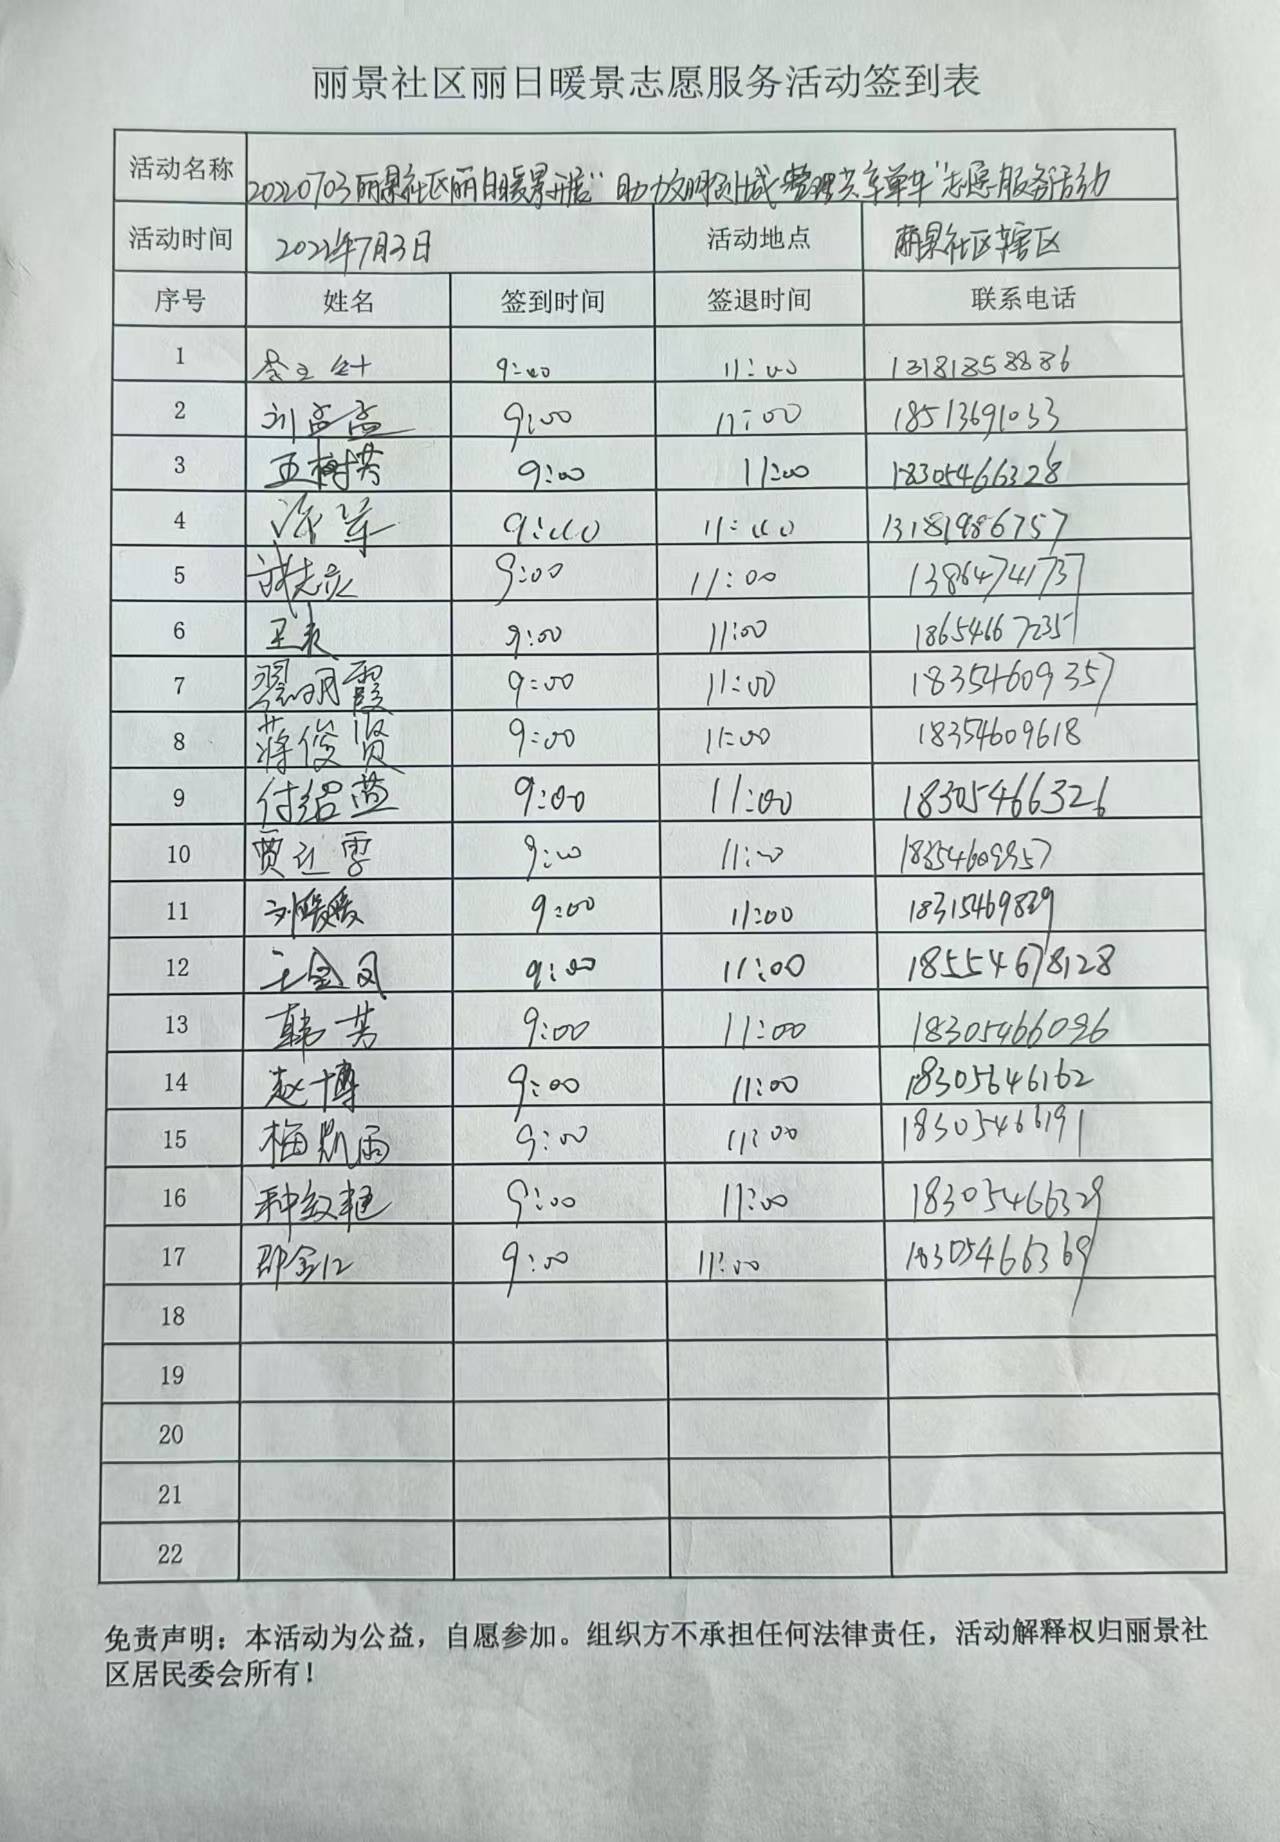 丽景社区丽日暖景志愿服务活动签到表
活动名称 20220703丽景社区丽日暖景开展“助力文明创城 管理共享单车”志愿服务活动
活动时间 2022年7月3日 活动地点 丽景社区辖区
序号 姓名 签到时间 签退时间 联系电话
1 9:00 11:00 13181858886
2 刘孟孟 9:00 11:00 18513691033
3 王树芬 9:00 11:00 18305466328
4 9:00 11:00 13181986757
5 9:00 11:00 13864741737
6 9:00 11:00 18654667235
7 翟明霞 9:00 11:00 18354609357
8 蒋俊贤 9:00 11:00 18354609618
9 付绍燕 9:00 11:00 18305466326
10 9:00 11:00 18354609957
11 刘媛媛 9:00 11:00
12 王金凤 9:00 11:00 18554678128
13 韩芳 9:00 11:00 18305466096
14 赵博 9:00 11:00 18305646162
15 梅凯雨 9:00 11:00 18305466191
16 9:00 11:00 18305466329
17 9:00 11:00 18305466369
18
19
20
21
22
免责声明：本活动为公益，自愿参加。组织方不承担任何法律责任，活动解释权归丽景社
区居民委会所有！